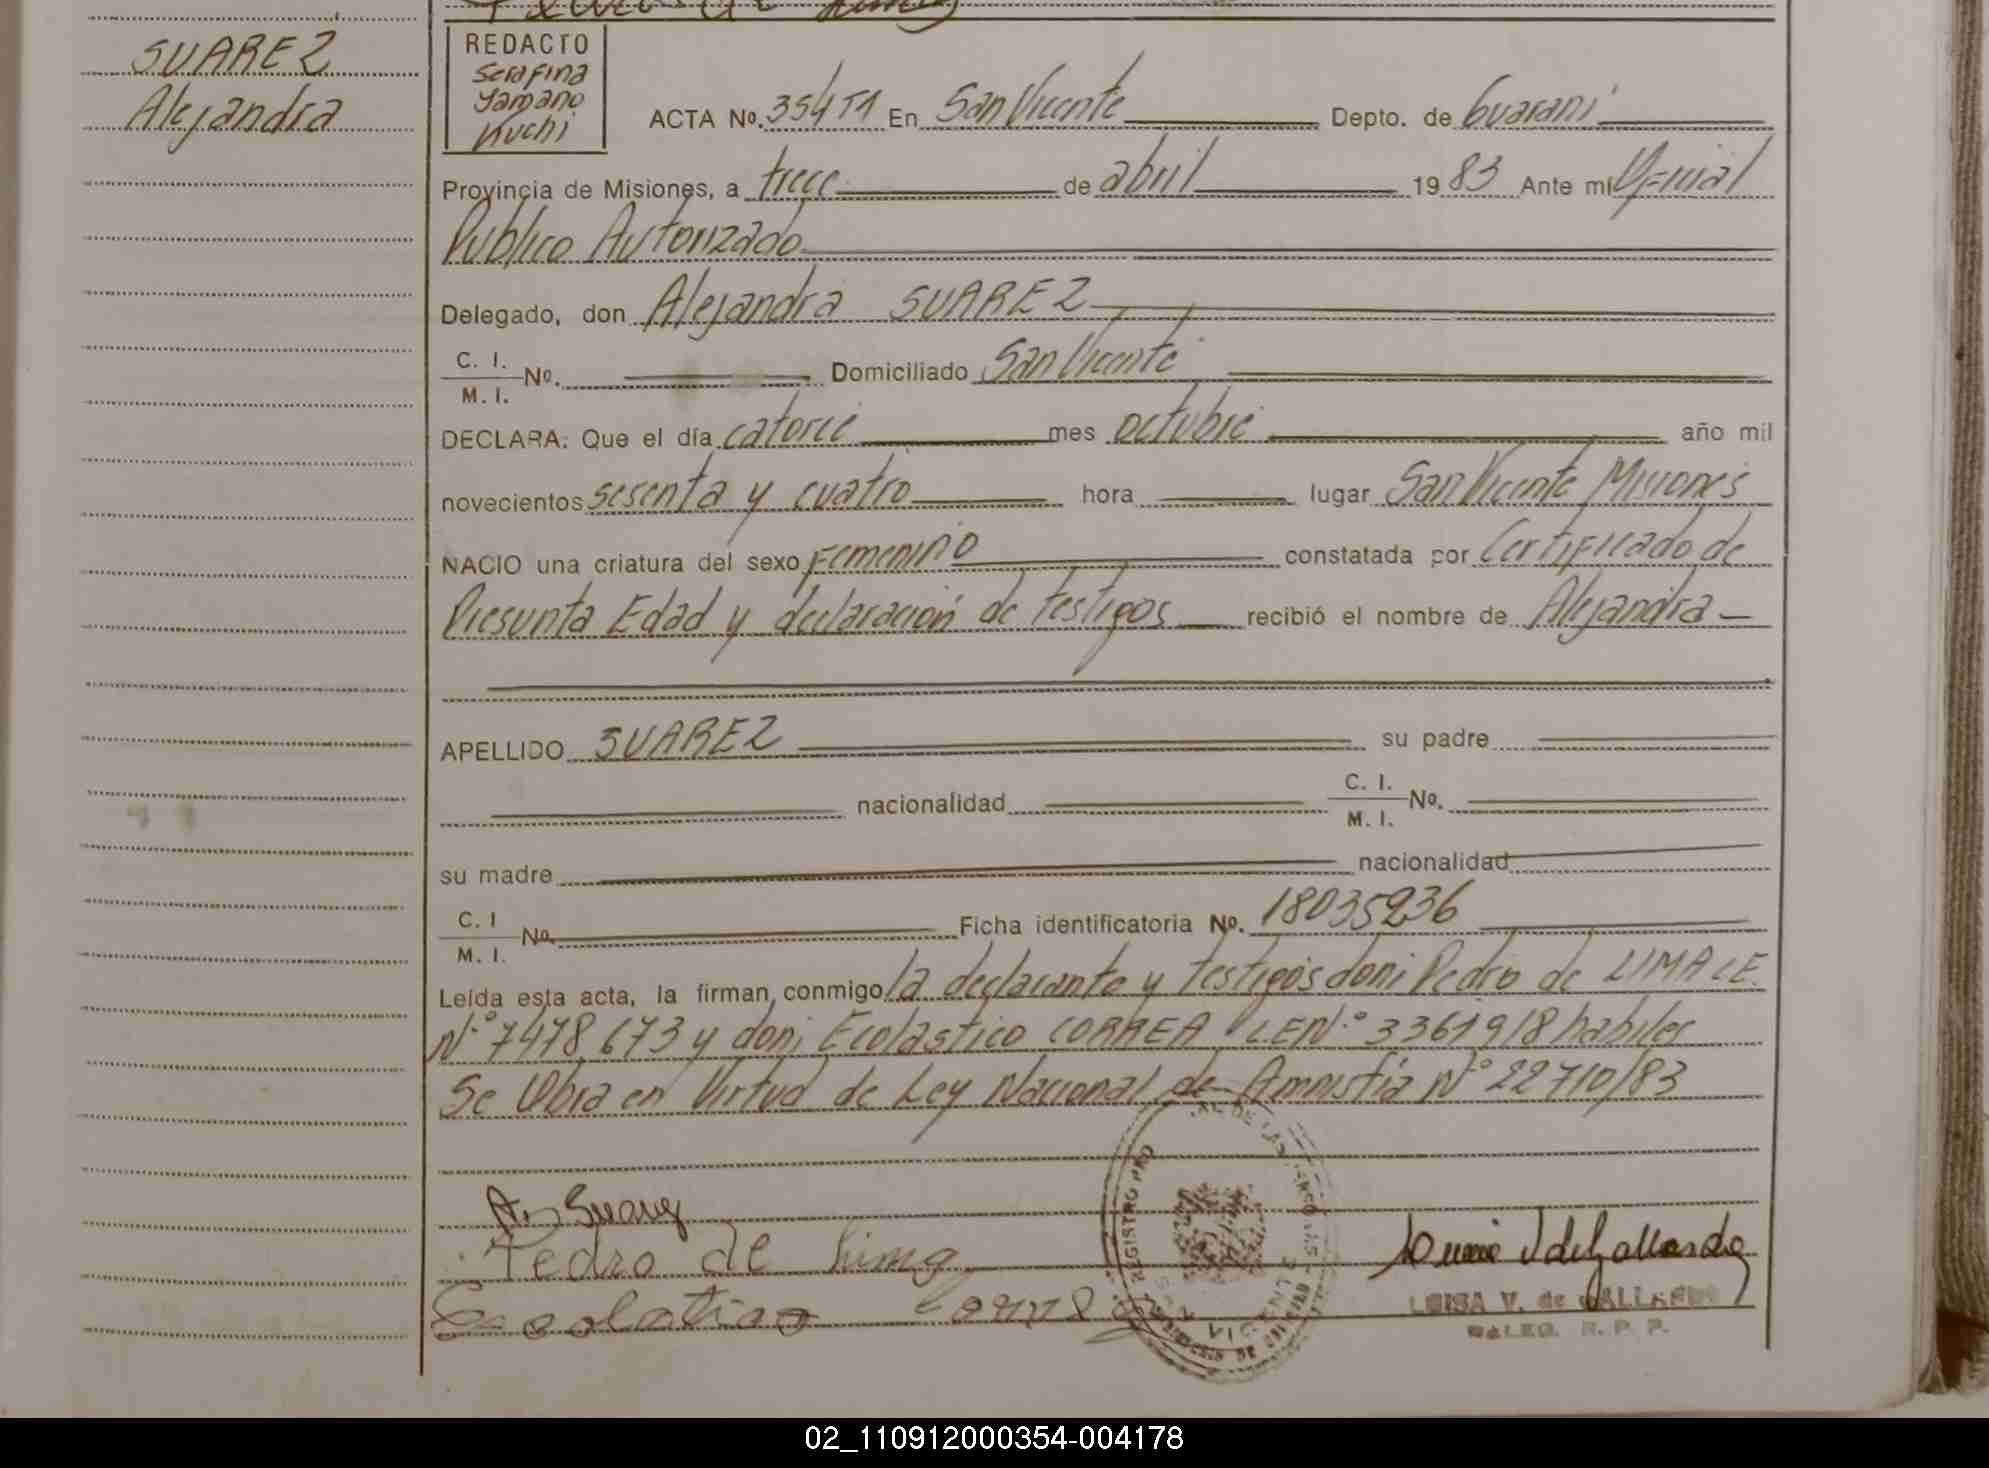 SUAREZ
Alejandra
REDACTO
Serafina
Yamano
Kuchi
ACTA No. 354 T1 En San Vicente Depto. de Guarani
Provincia de Misiones, a trece de abril 1983 Ante mi Oficial
Publico Autorizado
Delegado, don Alejandra SUAREZ
C. I.
M. I. No. Domiciliado San Vicente
DECLARA: Que el día catorce mes octubre año mil
novecientos sesenta y cuatro hora lugar San Vicente Misiones
NACIO una criatura del sexo Femenino constatada por Certificado de
Presunta Edad y declaración de testigos recibió el nombre de Alejandra
APELLIDO SUAREZ su padre
nacionalidad C. I.
M. I. No.
su madre nacionalidad
C. I
M. I. No. Ficha identificatoria No. 18035236
Leída esta acta, la firman conmigo la declarante y testigos don: Pedro de LIMA LE.
N.º 7478.673 y don: Ecolastico CORREA LE N.º 3361918 habiles
Se Obra en Virtud de Ley Nacional de Amnistia Nº 22710/83
Suarez
Pedro de Lima
REGISTRO PRO
LUISA V. de GALLARDO
DELEG. R. P. P.
02_110912000354-004178